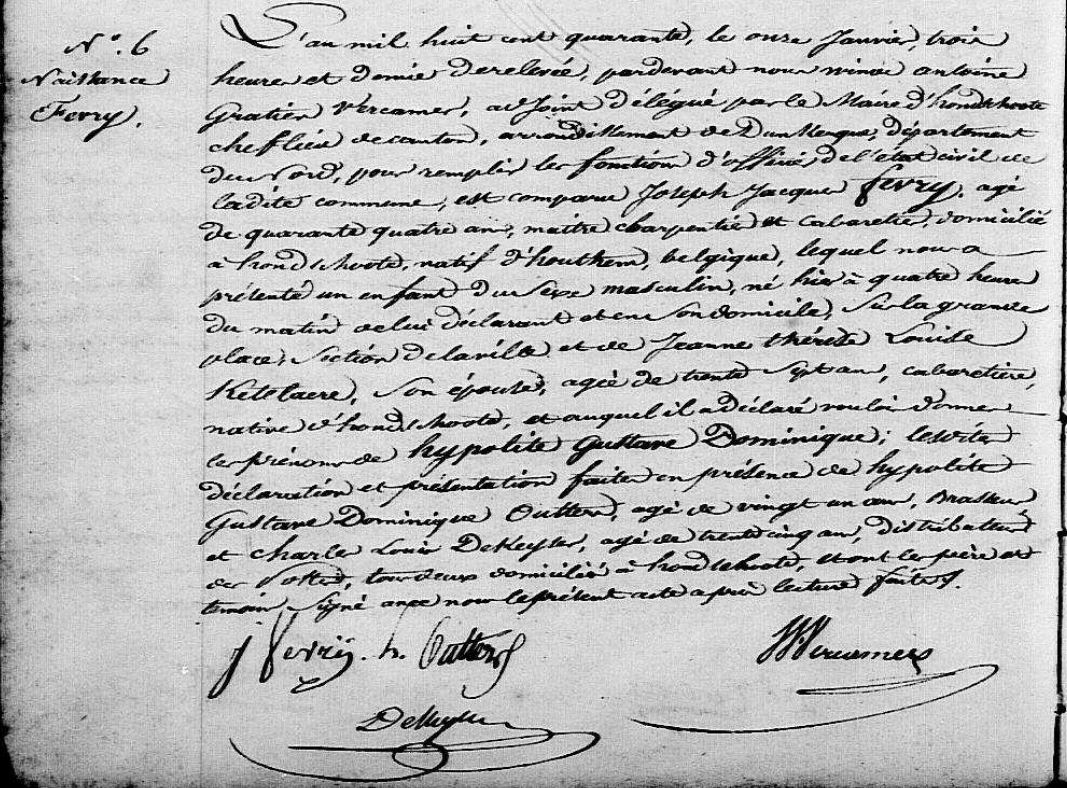 N.° 6
Naissance
Fevry.
L'an mil huit cent quarante, le onze Janvier, trois
heures et demie de relevée, pardevant nous winoc antoine
Gratien Vercamer, adjoint délégué par le Maire d'hondschoote
chef lieu de canton, arrondissement de Dunkerque, département
du Nord, pour remplir les fonctions d'officier de l'état civil de
ladite commune, est comparu Joseph Jacques Fevry, agé
de quarante quatre ans, maitre charpentier et cabaretier, domicilié
à hondschoote, natif d'houthem, belgique, lequel nous a
présenté un enfant du sexe masculin, né hier à quatre heures
du matin de lui déclarant et en son domicile, sur la grande
place, section de la ville et de Jeanne thérèse Louise
Ketelaere, son épouse, agée de trente sept ans, cabaretière,
native d'hondschoote, et auquel il a déclaré vouloir donner
les prénoms de hypolite Gustave Dominique; lesdites
déclaration et présentation faites en présence de hypolite
Gustave Dominique Outters, agé de vingt un ans, Brasseur
et charles Louis DeKeyser, agé de trente cinq ans, distributeur
des Postes, tous deux domiciliés à hondschoote, et ont les père et
temoins signé avec nous le présent acte après lecture faite.
J Fevrÿ. h. Outters
WVercamer
DeKeyser